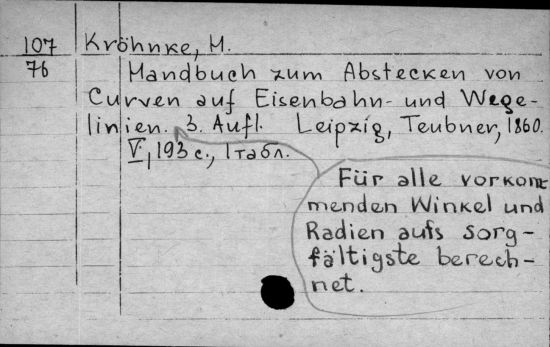 107
76
Kröhnke, M.
Handbuch zum Abstecken von
Curven auf Eisenbahn- und Wege-
linien. 3. Aufl. Leipzig, Teubner, 1860.
V, 193 с., 1 табл.
Für alle vorkom-
menden Winkel und
Radien aufs sorg-
fältigste berech-
net.